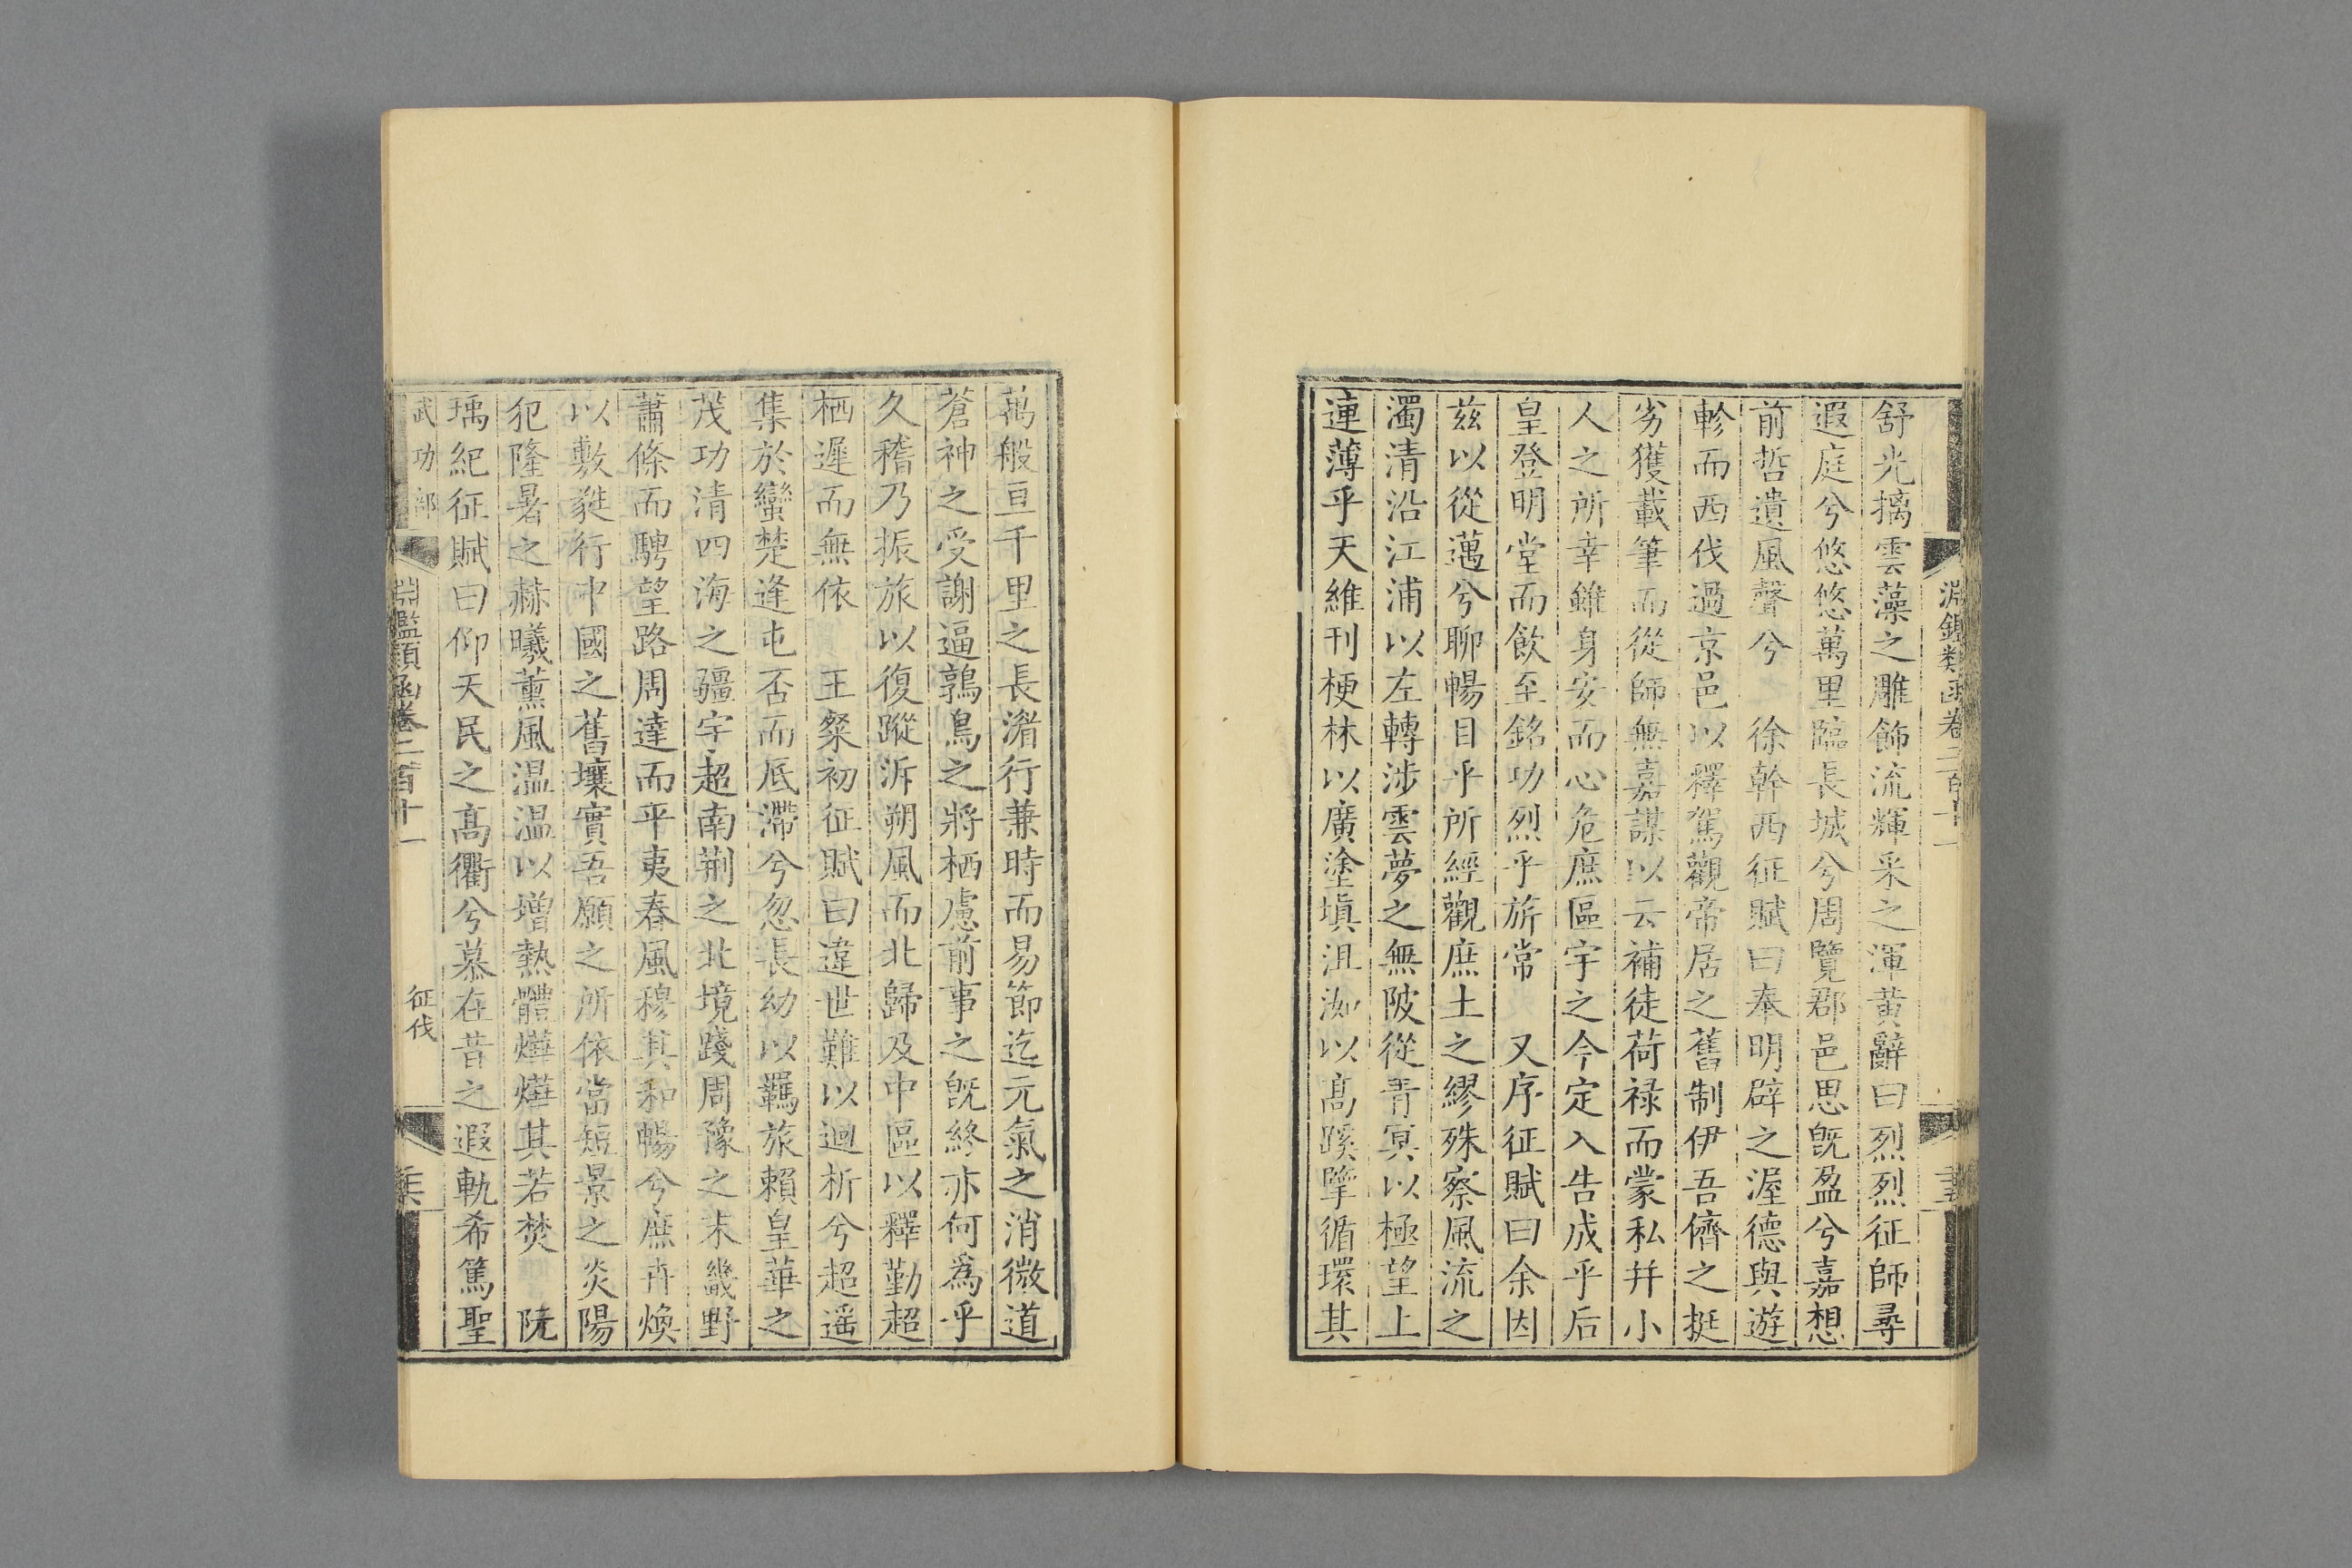 淵鑑類函卷二百十一
舒光摛雲藻之雕飾流輝采之渾黄辭曰烈烈征師尋
遐庭兮悠悠萬里臨長城兮周覽郡邑思旣盈兮嘉想
前哲遺風聲兮 徐幹西征賦曰奉明辟之渥德與遊
軫而西伐過京邑以釋駕觀帝居之舊制伊吾儕之挺
劣獲載筆而從師無嘉謀以云補徒荷禄而蒙私幷小
人之所幸雖身安而心危庶區宇之今定入告成乎后
皇登明堂而飲至銘功烈乎旂常 又序征賦曰余因
兹以從邁兮聊暢目乎所經觀庶土之繆殊察風流之
濁清沿江浦以左轉涉雲夢之無陂從青冥以極望上
連薄乎天維刊梗林以廣塗塡沮洳以髙蹊擥循環其
萬艘亘千里之長湽行兼時而易節迄元氣之消微道
蒼神之受謝逼鶉鳥之將栖慮前事之旣終亦何為乎
久稽乃振旅以復蹤泝朔風而北歸及中區以釋勤超
栖遲而無依 王粲初征賦曰違世難以迴折兮超遥
集於蠻楚逢屯否而底滯兮忽長幼以羈旅賴皇華之
茂功清四海之疆宇超南荆之北境踐周豫之末畿野
蕭條而騁望路周達而平夷春風穆其和暢兮庶卉煥
以敷蕤行中國之舊壤實吾願之所依當短景之炎陽
犯隆暑之赫曦薰風温温以增熱體燁燁其若焚 阮
瑀紀征賦曰仰天民之髙衢兮慕在昔之遐軌希篤聖
武功部 淵鑑類函卷二百十一 征伐